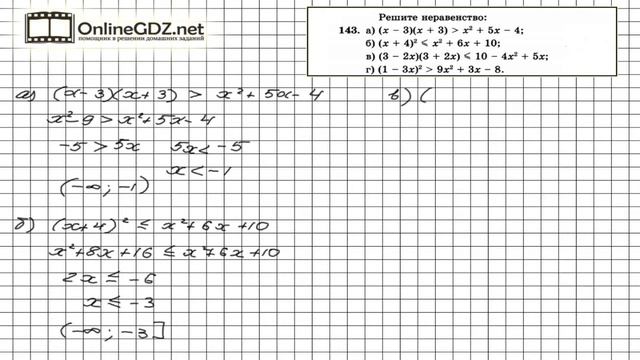 OnlineGDZ.net
помощник в решении домашних заданий
Решите неравенство:
143. а) (x − 3)(x + 3) > x² + 5x − 4;
б) (x + 4)² ⩽ x² + 6x + 10;
в) (3 − 2x)(3 + 2x) ⩽ 10 − 4x² + 5x;
г) (1 − 3x)² > 9x² + 3x − 8.
а) (x−3)(x+3) > x²+5x−4
x²−9 > x²+5x−4
−5 > 5x 5x < −5
x < −1
(−∞; −1)
б) (x+4)² ≤ x²+6x+10
x²+8x+16 ≤ x²+6x+10
2x ≤ −6
x ≤ −3
(−∞; −3]
в) (